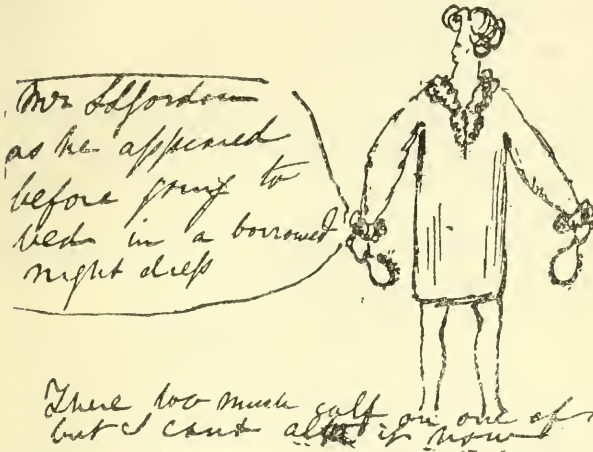 Mr
as he appeared
before going to
bed in a borrowed
night dress
There too much calf on one of
but I cant alter it now